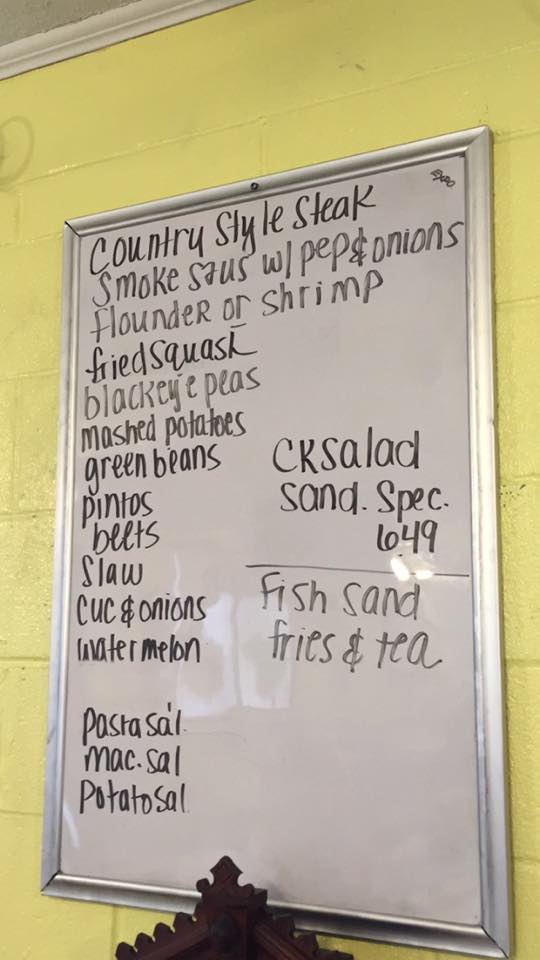 Country Style Steak
Smoke saus w/ pep & onions
flounder or shrimp
fried squash
blackeye peas
mashed potatoes
green beans
pintos
beets
Slaw
cuc & onions
watermelon
Pasta sal.
mac. sal
Potato sal
CK Salad
Sand. Spec.
649
Fish Sand
fries & tea